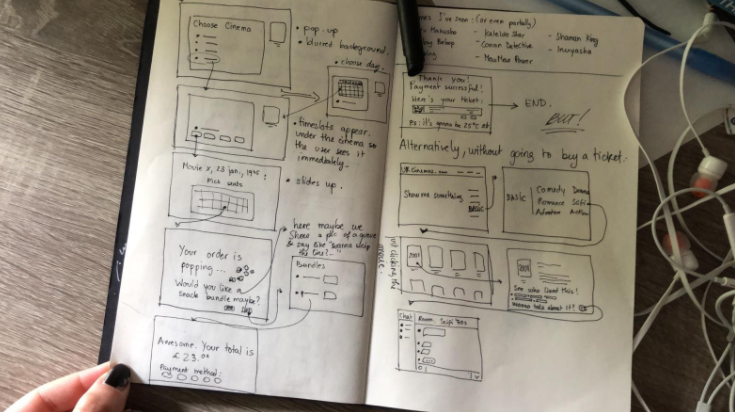 Choose Cinema
• pop-up
• blurred background.
• choose day
• timeslots appear
under the cinema so
the user sees it
immediately.
Movie x, 23 jan.,
Pick seats
• slides up.
Your order is
popping...
Would you like a
snack bundle maybe?
• here maybe we
show a pic of a queue
& say like "wanna skip
this line?"
Bundles
Awesome. Your total is
£23.00
Payment method:
I've seen: (or even partially)
• Kaleido Star
• Shaman King
Bebop
• Conan Detective
• Inuyasha
• Mew Mew Power
Thank you!
Payment successful!
Here's your ticket:
Ps: it's gonna be 25°C at
END.
BUT!
Alternatively, without going to buy a ticket:
UK Cinemas
Show me something
BASIC
BASIC
Comedy Drama
Romance Scifi
Adventure Action
See who liked this!
Wanna talk about it?
Chat
Room